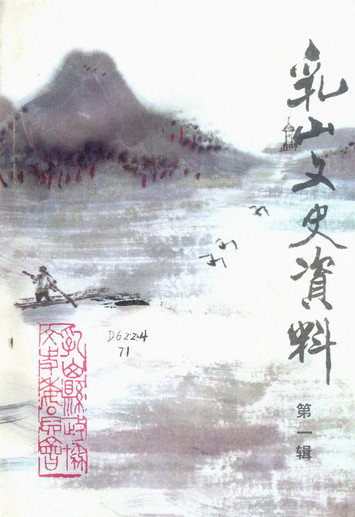 乳山文史資料
第一辑
D622.4
71
乳山縣政協
文史委員會